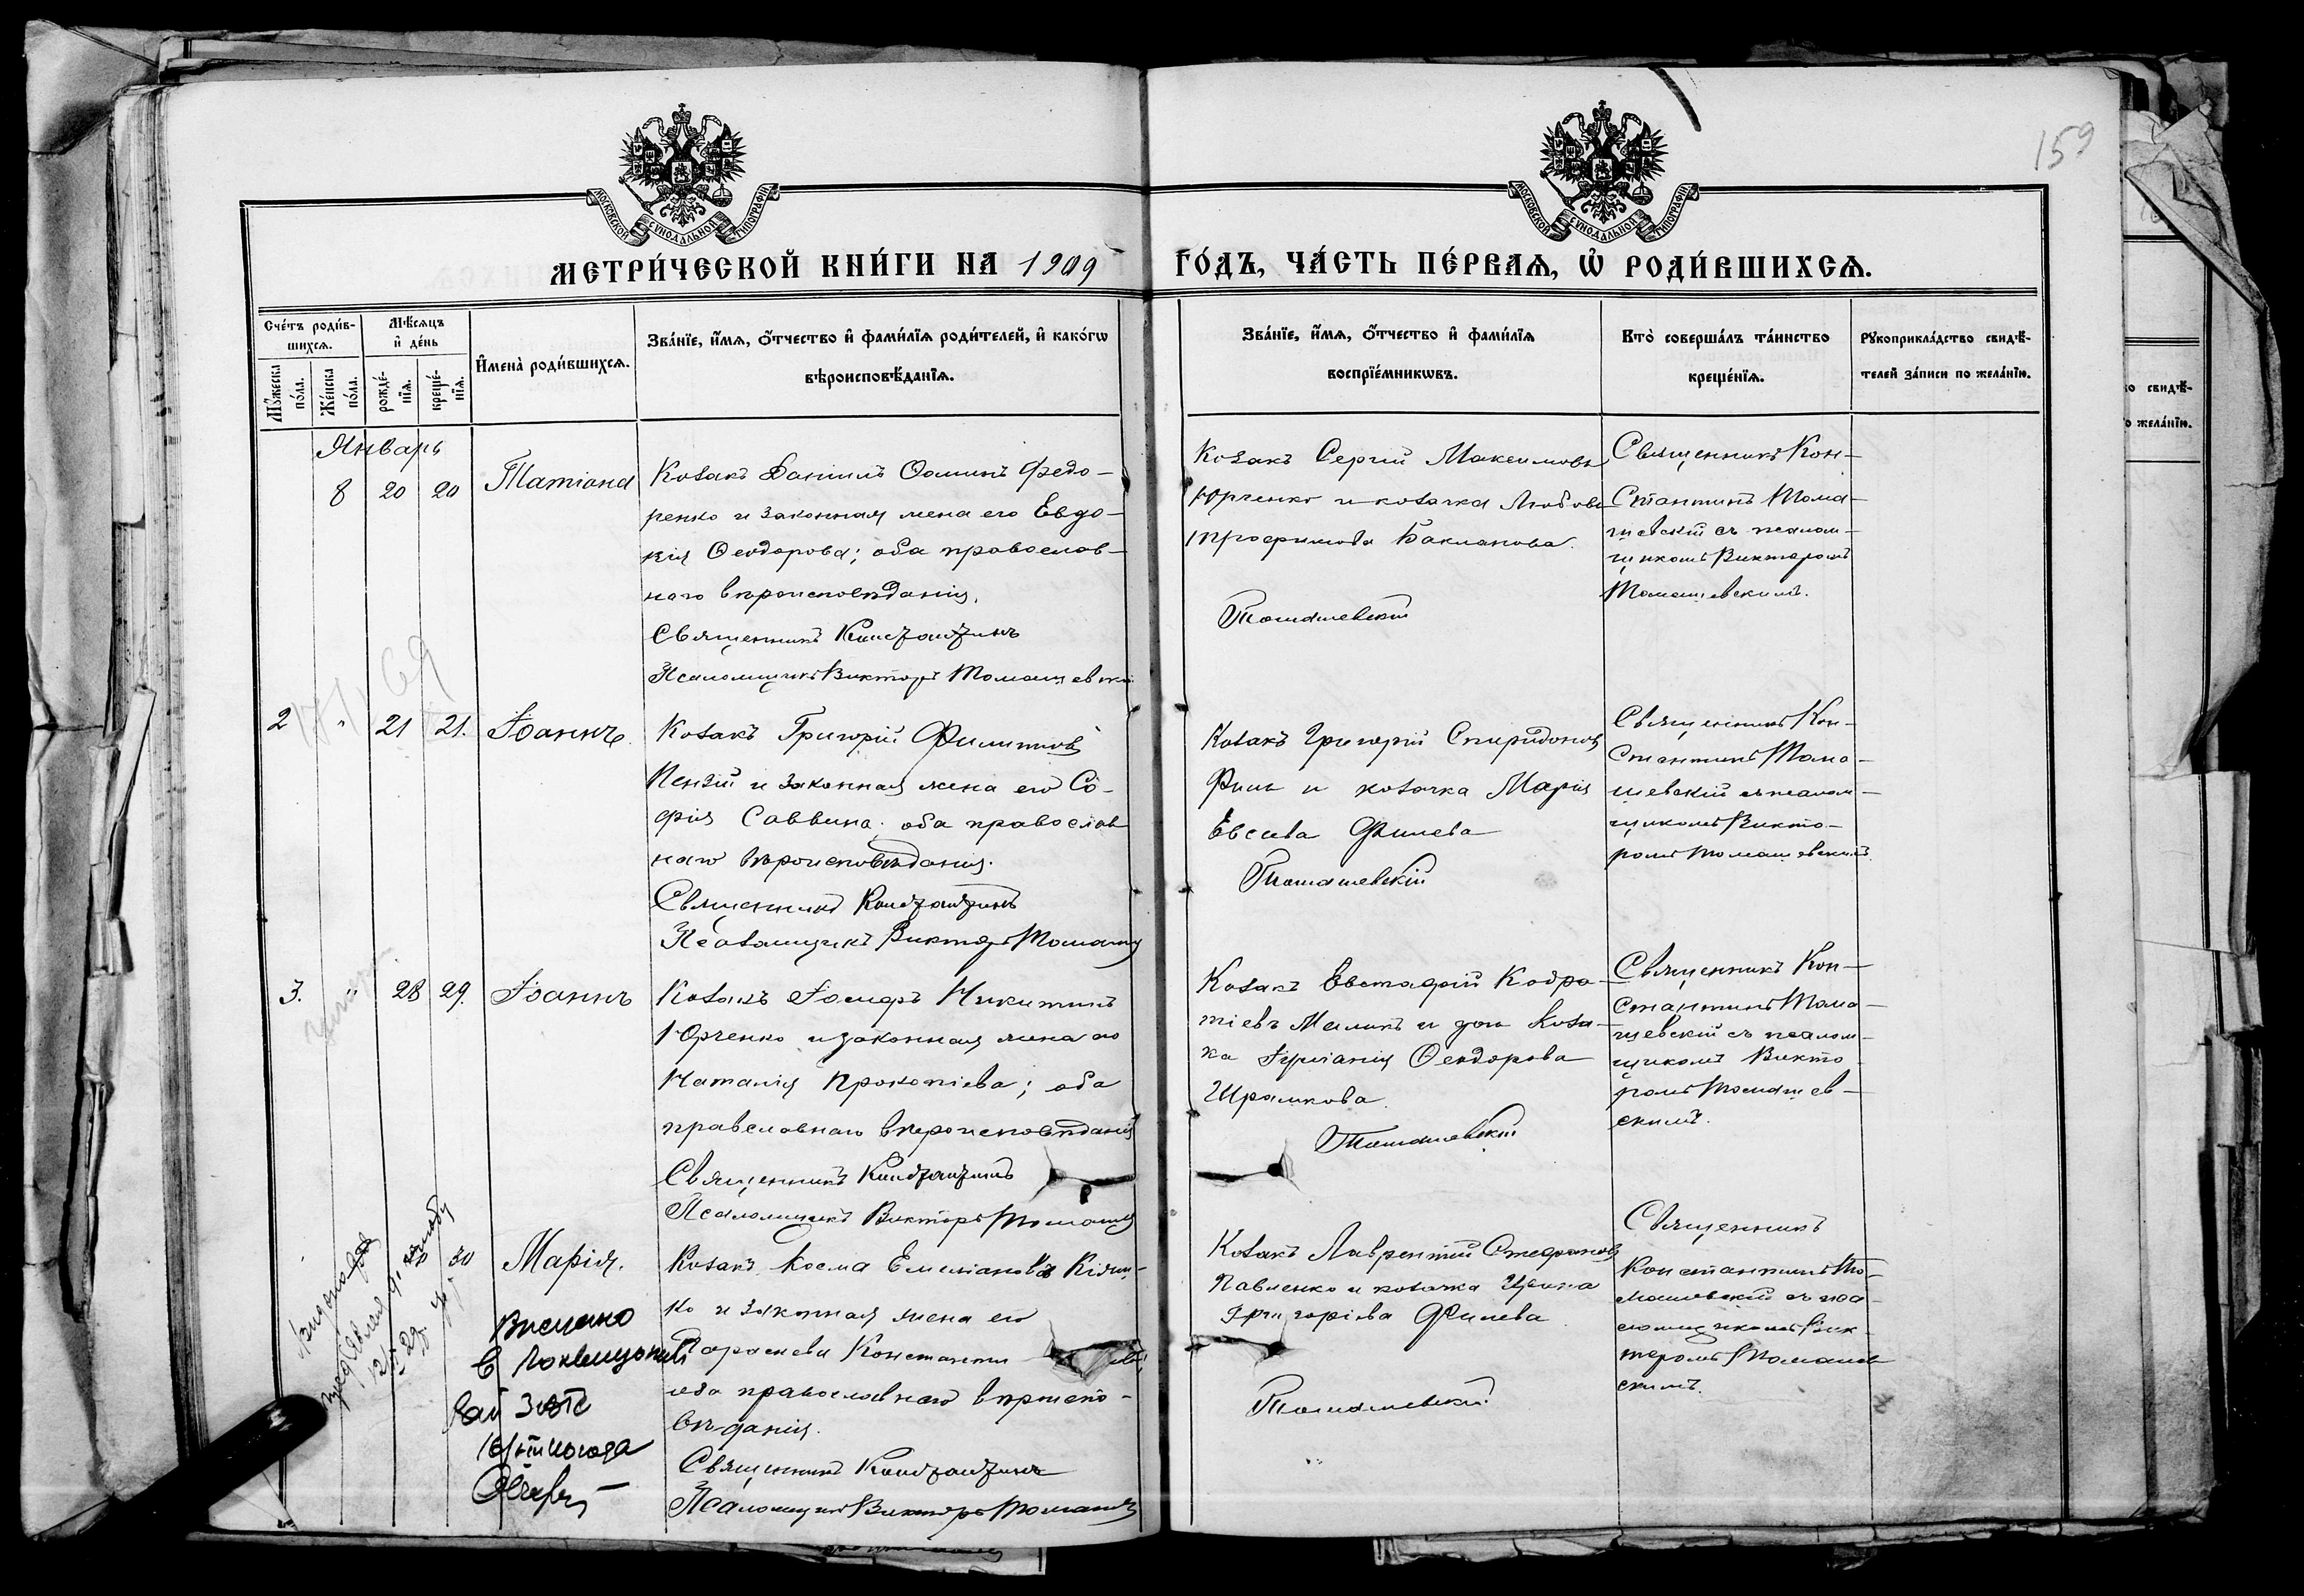 159
МОСКОВСКОЙ СѴНОДАЛЬНОЙ ТИПОГРАФІИ
МОСКОВСКОЙ СѴНОДАЛЬНОЙ ТИПОГРАФІИ
МЕТРИ́ЧЕСКОЙ КНИ́ГИ НА 1909 ГО́ДЪ, ЧА́СТЬ ПЕ́РВАѦ, Ѡ҆ РОДИ́ВШИХСѦ.
Сче́тъ роди́в-
шихсѧ.
Мꙋ́жеска по́ла.
Же́нска по́ла.
Мѣ́сѧцъ
и҆ де́нь
рожде́-
нїѧ.
креще́-
нїѧ.
И҆мена̀ роди́вшихсѧ.
Зва́нїе, и҆́мѧ, ѻ҆́тчество и҆ фами́лїѧ роди́телей, и҆ како́гѡ
вѣроисповѣ́данїѧ.
Зва́нїе, и҆́мѧ, ѻ҆́тчество и҆ фами́лїѧ
воспрїе́мникѡвъ.
Кто̀ соверша́лъ та́инство
креще́нїѧ.
Рꙋкоприкла́дство свидѣ́-
телей за́писи по жела́нїю.
Январь
8 20 20 Татіана
Козакъ Даніилъ Ѳоминъ Федо-
ренко и законная жена его Евдо-
кія Ѳеодорова; оба православ-
наго вѣроисповѣданія.
Священникъ Константинъ
Псаломщикъ Викторъ Томашевскій
Козакъ Сергій Максимовъ
Юрченко и козачка Любовь
Трофимова Бакланова.
Томашевскій
Священникъ Кон-
стантинъ Тома-
шевскій съ псалом-
щикомъ Викторомъ
Томашевскимъ.
2 " 21 21. Іоаннъ.
Козакъ Григорій Филиповъ
и законная жена его Со-
фія Саввина; оба православ
наго вѣроисповѣданія.
Священникъ Константинъ
Псаломщикъ Викторъ Томаш
Козакъ Григорій Спиридоновъ
и козачка Марія
Евсеева Филева
Томашевскій
Священникъ Кон-
стантинъ Тома-
шевскій съ псалом-
щикомъ Викто-
ромъ Томашевскимъ.
3. " 28 29. Іоаннъ
Козакъ Іосифъ Никитинъ
Юрченко и законная жена его
Наталія Прокопіева; оба
православнаго вѣроисповѣданія
Священникъ Константинъ
Псаломщикъ Викторъ Томаш
Козакъ Евстафій Кодра-
тіевъ и дочь коза-
ка Іуліанія Ѳеодорова
Шрамкова.
Томашевскій
Священникъ Кон-
стантинъ Тома-
шевскій съ псалом-
щикомъ Викто
ромъ Томашев-
скимъ.
30 30 Марія.
Козакъ Косма Емиліановъ
ко и законная жена его
Параскева Константи
оба православнаго вѣроиспо-
вѣданія.
Священникъ Константинъ
Псаломщикъ Викторъ Томаш
Козакъ Лаврентій Стефановъ
Павленко и козачка Ирина
Григоріева Филева
Томашевскій
Священникъ
Константинъ То-
машевскій съ пса-
ломщикомъ Вик-
торомъ Томашев
скимъ.